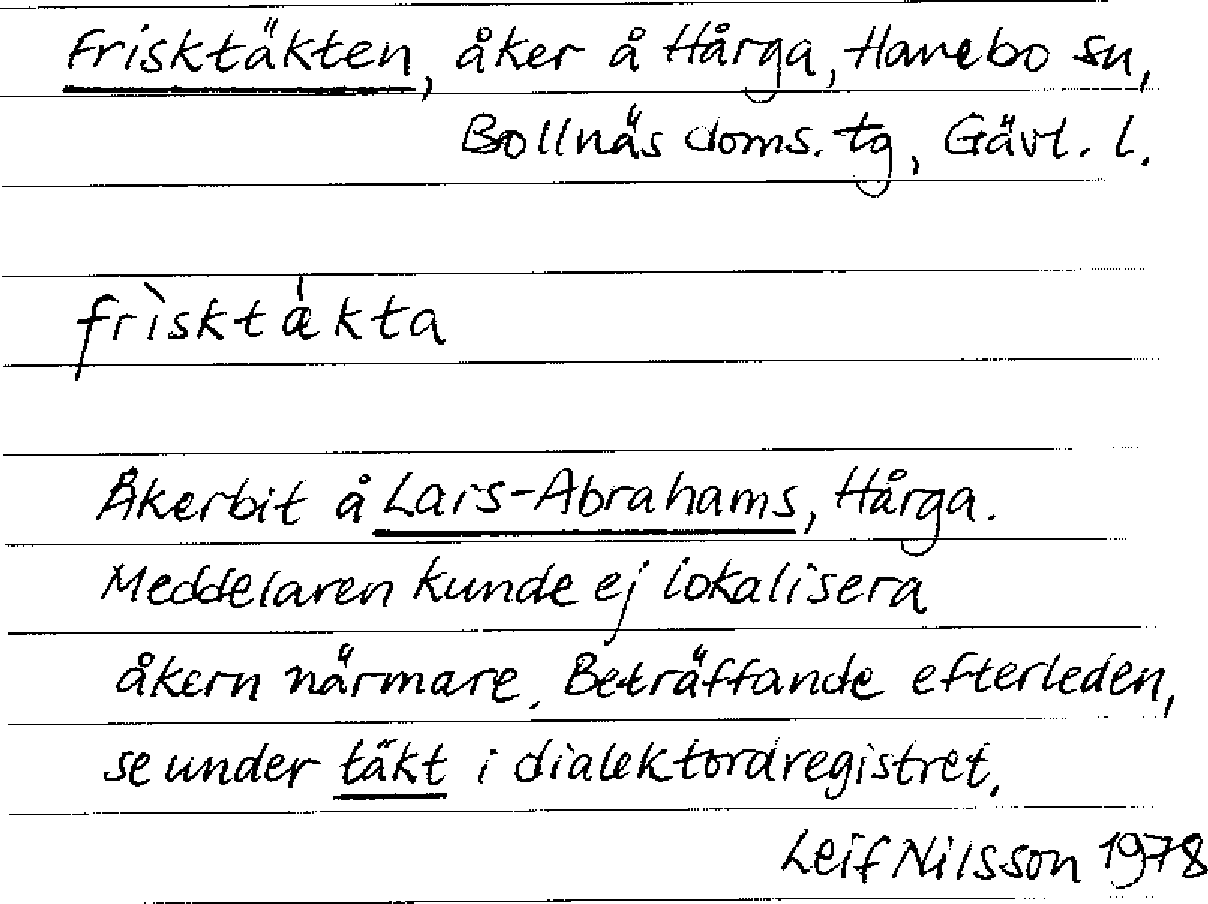 Frisktäkten, åker å Hårga, Hanebo sn,
Bollnäs doms. tg, Gävl. l.
frìsktǽkta
Åkerbit å Lars-Abrahams, Hårga.
Meddelaren kunde ej lokalisera
åkern närmare. Beträffande efterleden,
se under täkt i dialektordregistret.
Leif Nilsson 1978